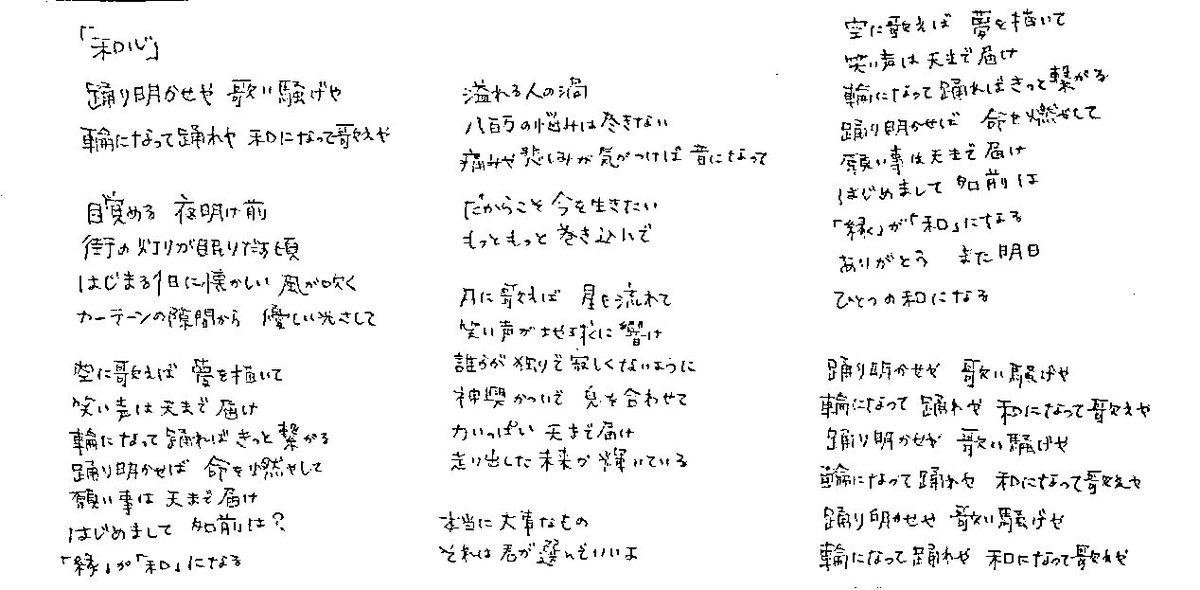 「和心」
踊り明かせや 歌い騒げや
輪になって踊れや 和になって歌えや
目覚める 夜明け前
街の灯りが眠りだす頃
はじまる1日に懐かしい 風が吹く
カーテーンの隙間から 優しい光さして
空に歌えば 夢を描いて
笑い声は天まで届け
輪になって踊ればきっと繋がる
踊り明かせば 命を燃やして
願い事は天まで届け
はじめまして 名前は？
「縁」が「和」になる
溢れる人の渦
八百万の悩みは尽きない
痛みや悲しみが気がつけば音になって
だからこそ今を生きたい
もっともっと 巻き込んで
月に歌えば 星も流れて
笑い声が地球に響け
誰もが独りで寂しくないように
神輿かついで 息を合わせて
力いっぱい 天まで届け
走り出した未来が輝いている
本当に大事なもの
それは君が選んでいいよ
空に歌えば 夢を描いて
笑い声は天まで届け
輪になって踊ればきっと繋がる
踊り明かせば 命を燃やして
願い事は天まで届け
はじめまして 名前は
「縁」が「和」になる
ありがとう また明日
ひとつの和になる
踊り明かせや 歌い騒げや
輪になって踊れや 和になって歌えや
踊り明かせや 歌い騒げや
輪になって踊れや 和になって歌えや
踊り明かせや 歌い騒げや
輪になって踊れや 和になって歌えや